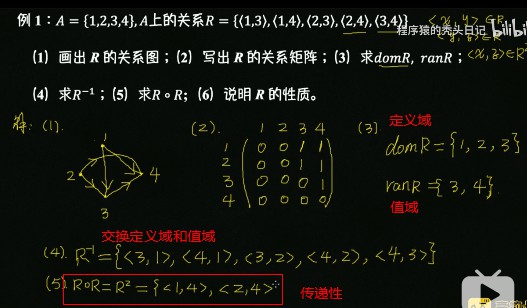 例 1：A = {1,2,3,4}, A上的关系R = {⟨1,3⟩,⟨1,4⟩,⟨2,3⟩,⟨2,4⟩,⟨3,4⟩}
程序猿的秃头日记 bilibili
（1）画出 R 的关系图；（2）写出 R 的关系矩阵；（3）求domR, ranR；
（4）求R⁻¹；（5）求R∘R；（6）说明 R 的性质。
解：(1).
1
2
4
3
(2).
1 2 3 4
1 0 0 1 1
2 0 0 1 1
3 0 0 0 1
4 0 0 0 0
(3).
定义域
domR = {1, 2, 3}
ranR = {3, 4}.
值域
交换定义域和值域
(4). R⁻¹ = {<3,1>, <4,1>, <3,2>, <4,2>, <4,3>}
(5). R∘R = R² = {<1,4>, <2,4>}
传递性